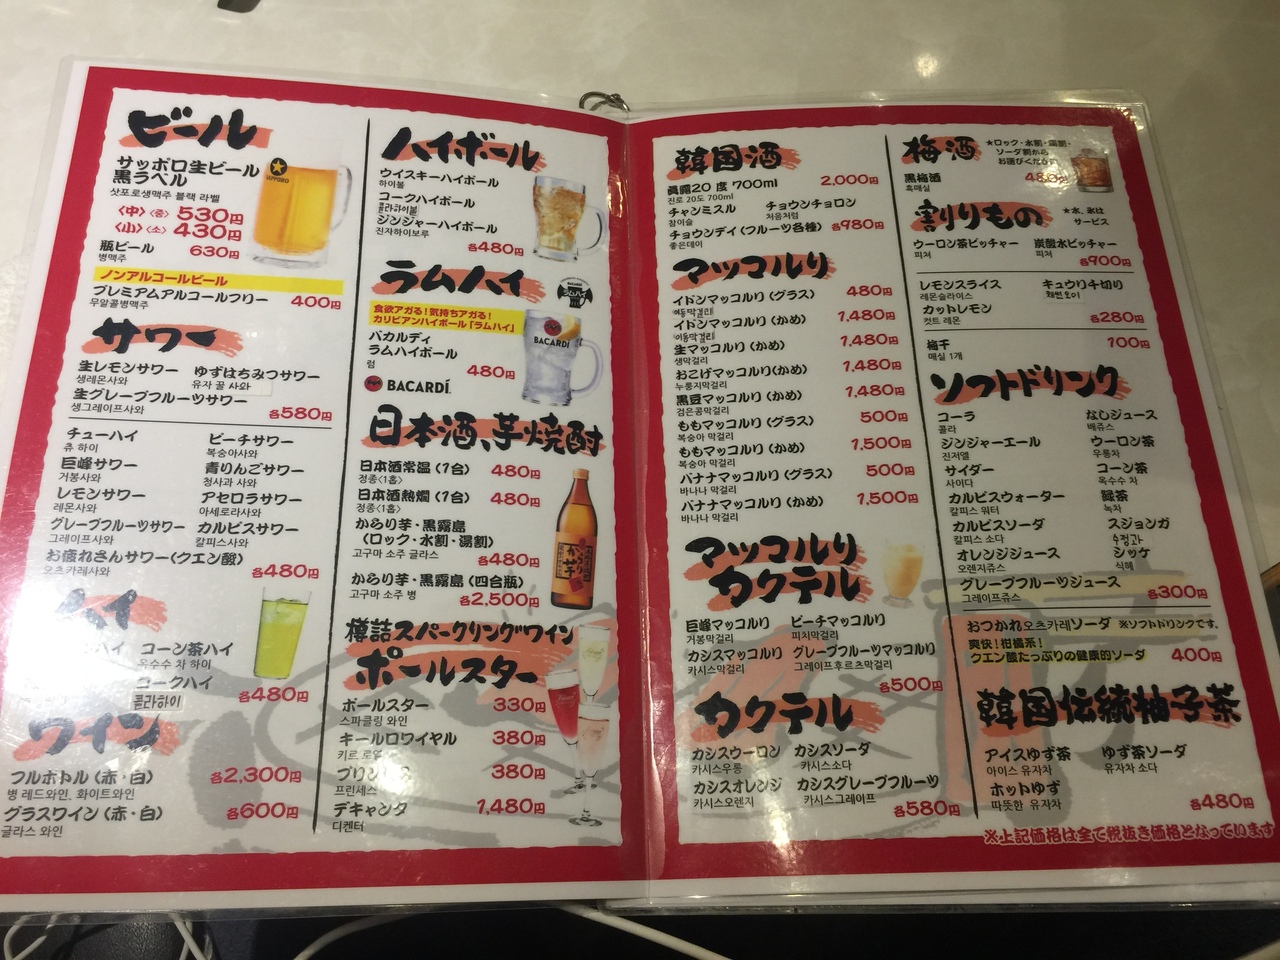 ビール
サッポロ生ビール
黒ラベル
삿포로생맥주 블랙 라벨
〈中〉〈중〉 530円
〈小〉〈소〉 430円
瓶ビール 630円
병맥주
ノンアルコールビール
プレミアムアルコールフリー 400円
무알콜병맥주
SAPPORO
サワー
生レモンサワー ゆずはちみつサワー
생레몬사와 유자 꿀 사와
生グレープフルーツサワー
생그레이프사와 各580円
チューハイ ピーチサワー
츄 하이 복숭아사와
巨峰サワー 青りんごサワー
거봉사와 청사과 사와
レモンサワー アセロラサワー
레몬사와 아세로라사와
グレープフルーツサワー カルピスサワー
그레이프사와 칼피스사와
お疲れさんサワー(クエン酸)
오츠카레사와 各480円
ハイ
ハイ コーン茶ハイ
옥수수 차 하이
コークハイ
콜라하이 各480円
ワイン
フルボトル(赤・白) 各2,300円
병 레드와인, 화이트와인
グラスワイン(赤・白) 各600円
글라스 와인
ハイボール
ウイスキーハイボール
하이볼
コークハイボール
콜라하이볼
ジンジャーハイボール
진자하이보루 各480円
ラムハイ
ラムハイ
食欲アガる!気持ちアガる!
カリビアンハイボール「ラムハイ」
バカルディ
ラムハイボール
럼 480円
BACARDÍ.
BACARDÍ
日本酒、芋焼酎
日本酒常温〈1合〉 480円
정종〈1홉〉
日本酒熱燗〈1合〉 480円
정종〈1홉〉
からり芋・黒霧島
(ロック・水割・湯割)
고구마 소주 글라스 各480円
からり芋・黒霧島(四合瓶)
고구마 소주 병 各2,500円
からり芋
樽詰スパークリングワイン
ポールスター
ポールスター 330円
스파클링 와인
キールロワイヤル 380円
키르 로열
プリンセス 380円
프린세스
デキャンタ 1,480円
디켄터
韓国酒
眞露20度 700ml 2,000円
진로 20도 700ml
チャンミスル チョウンチョロン
참이슬 처음처럼
チョウンデイ(フルーツ各種) 各980円
좋은데이
マッコルリ
イドンマッコルリ(グラス) 480円
이동막걸리
イドンマッコルリ(かめ) 1,480円
이동막걸리
生マッコルリ(かめ) 1,480円
생막걸리
おこげマッコルリ(かめ) 1,480円
누룽지막걸리
黒豆マッコルリ(かめ) 1,480円
검은콩막걸리
ももマッコルリ(グラス) 500円
복숭아 막걸리
ももマッコルリ(かめ) 1,500円
복숭아 막걸리
バナナマッコルリ(グラス) 500円
바나나 막걸리
バナナマッコルリ(かめ) 1,500円
바나나 막걸리
マッコルリ
カクテル
巨峰マッコルリ ピーチマッコルリ
거봉막걸리 피치막걸리
カシスマッコルリ グレープフルーツマッコルリ
카시스막걸리 그레이프후르츠막걸리
各500円
カクテル
カシスウーロン カシスソーダ
카시스우롱 카시스소다
カシスオレンジ カシスグレープフルーツ
카시스오렌지 카시스그레이프
各580円
梅酒
★ロック・水割・湯割・
ソーダ割から
お選びください
黒梅酒 480円
흑매실
割りもの
★水、氷は
サービス
ウーロン茶ピッチャー 炭酸水ピッチャー
피쳐 피쳐 各900円
レモンスライス キュウリ千切り
레몬슬라이스 채썬오이
カットレモン
컷트 레몬 各280円
梅干 100円
매실 1개
ソフトドリンク
コーラ なしジュース
콜라 배쥬스
ジンジャーエール ウーロン茶
진저엘 우롱차
サイダー コーン茶
사이다 옥수수 차
カルピスウォーター 緑茶
칼피스 워터 녹차
カルピスソーダ スジョンガ
칼피스 소다 수정과
オレンジジュース シッケ
오렌지쥬스 식혜
グレープフルーツジュース
그레이프쥬스 各300円
おつかれ오츠카레ソーダ ※ソフトドリンクです。
爽快!柑橘系!
クエン酸たっぷりの健康的ソーダ 400円
韓国伝統柚子茶
アイスゆず茶 ゆず茶ソーダ
아이스 유자차 유자차 소다
ホットゆず
따뜻한 유자차 各480円
※上記価格は全て税抜き価格となっています